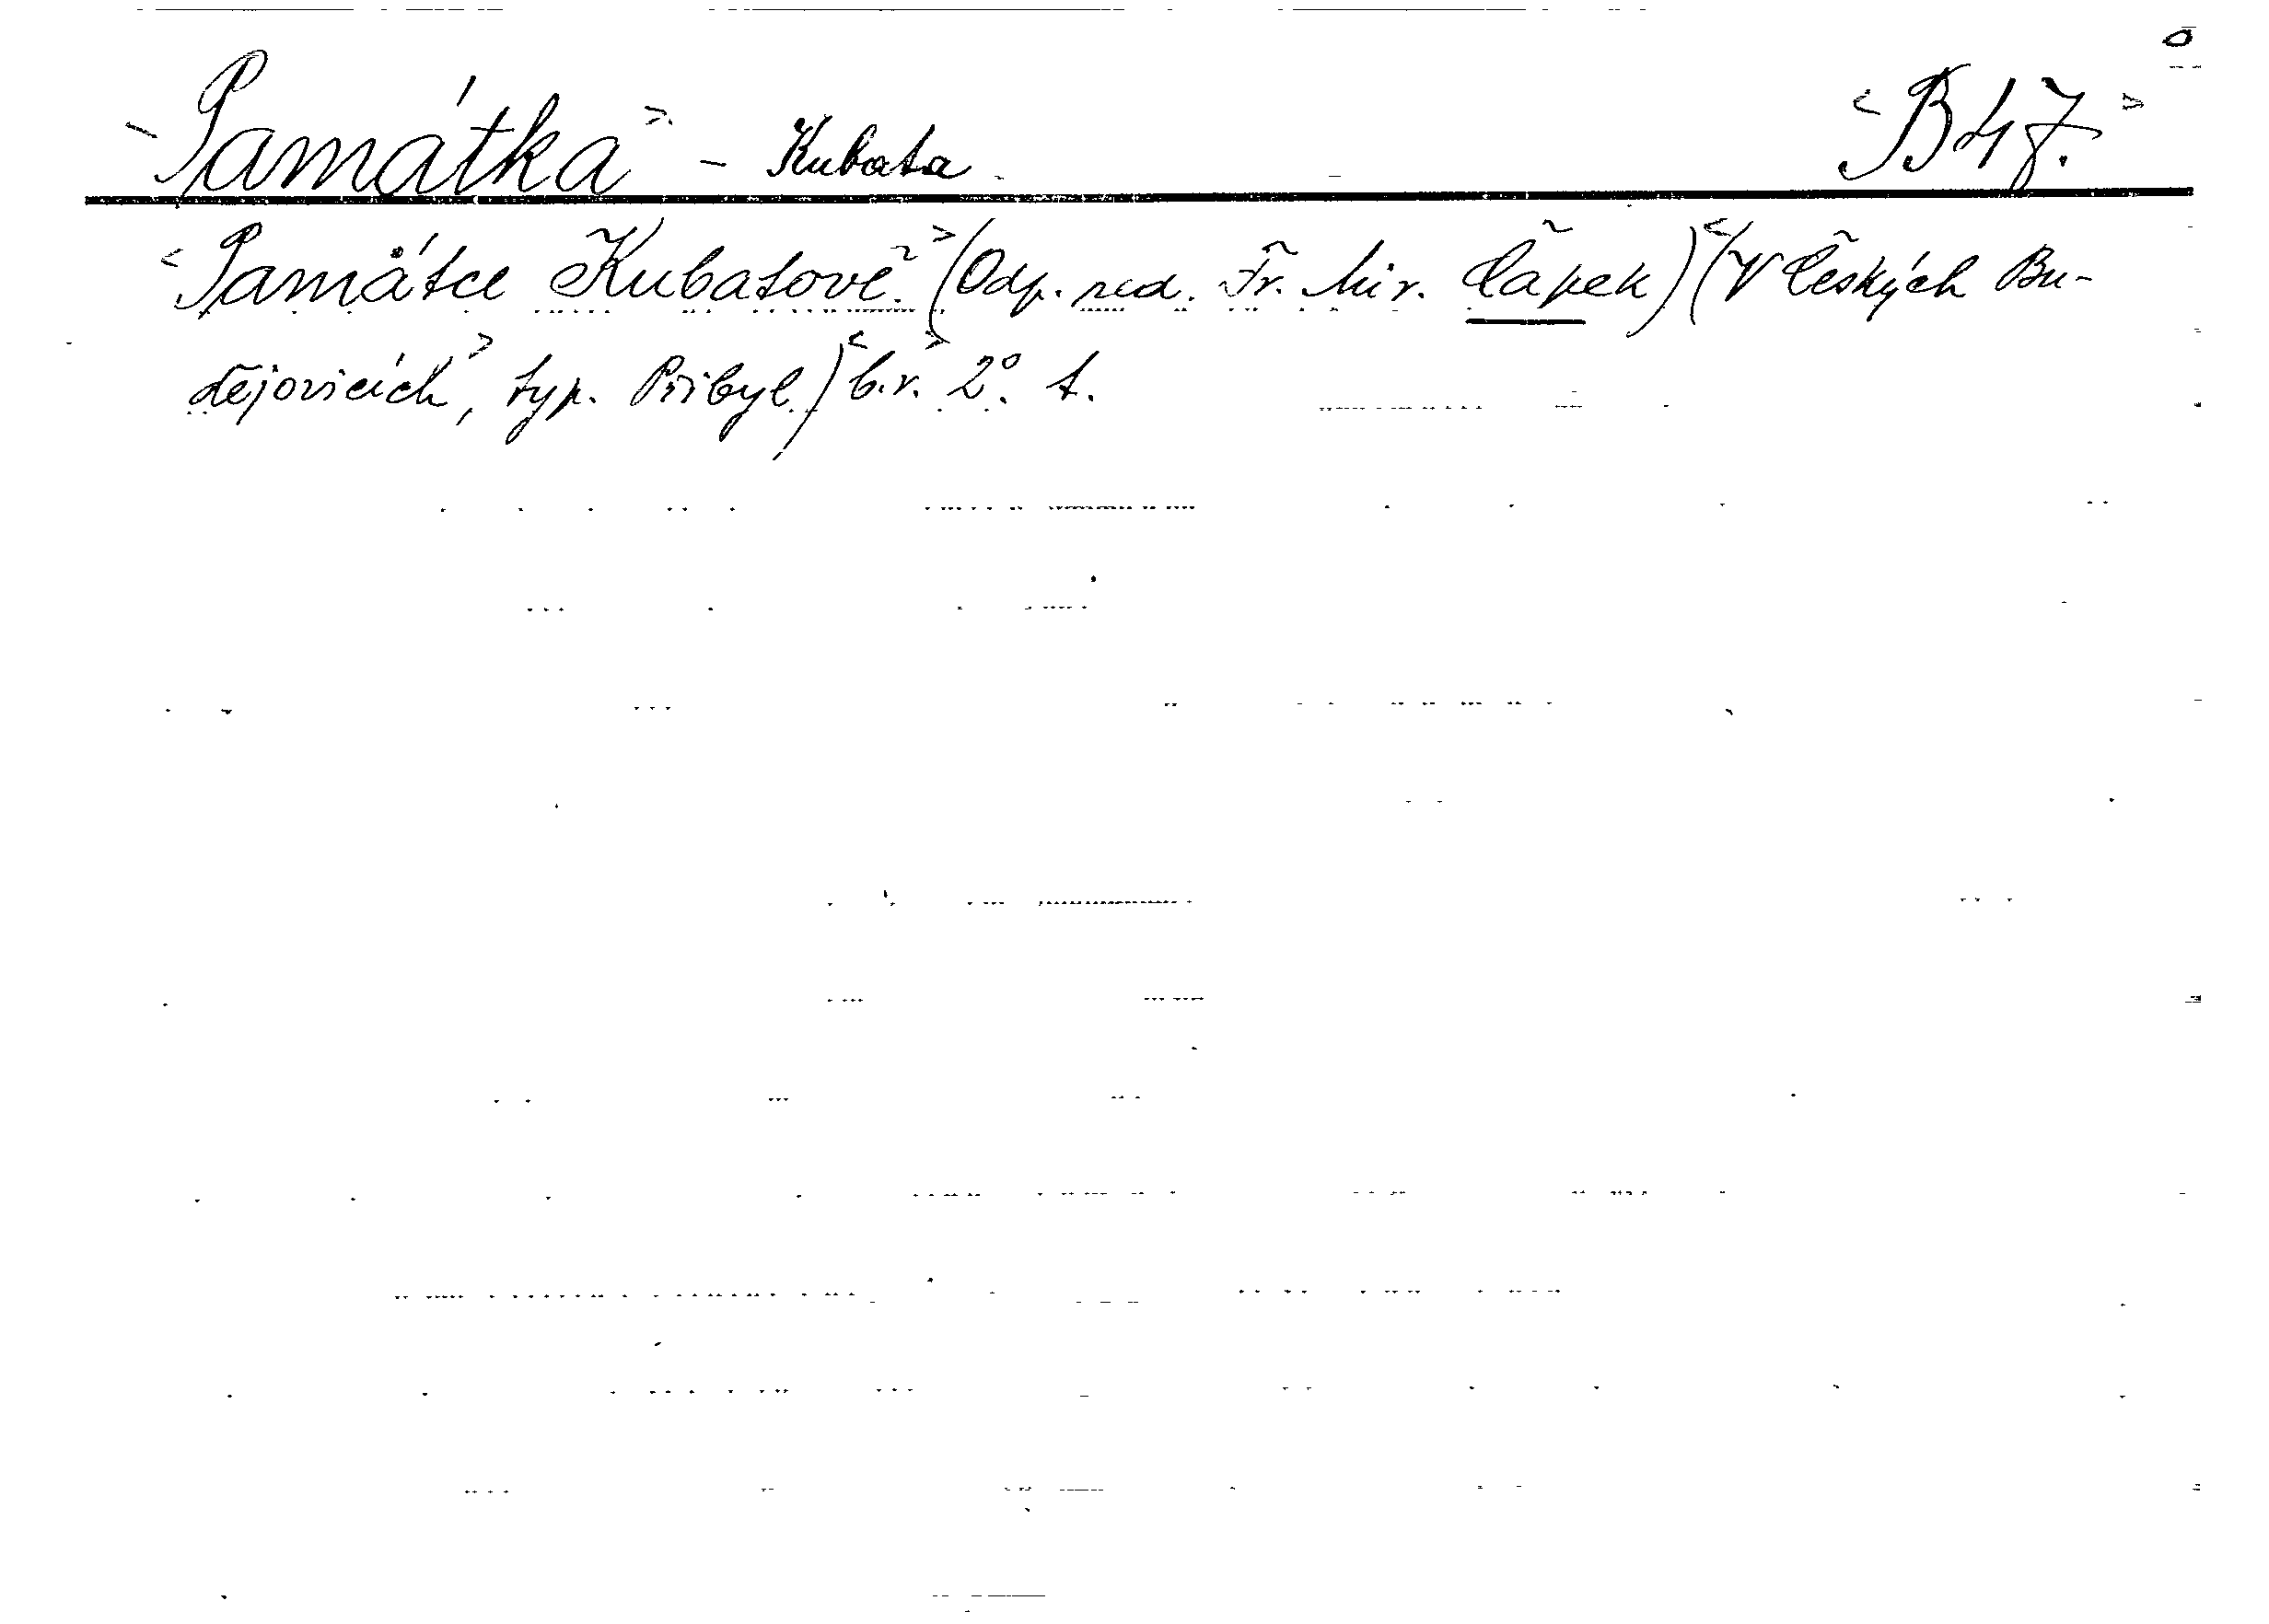 <Památka> - Kubata <B47.>
<Památce Kubatově.> (Odp. red. Fr. Mir. Čápek) <(V Českých Bu-
dějovicích,> typ. Přibyl.) <b.r.> 2°. t.